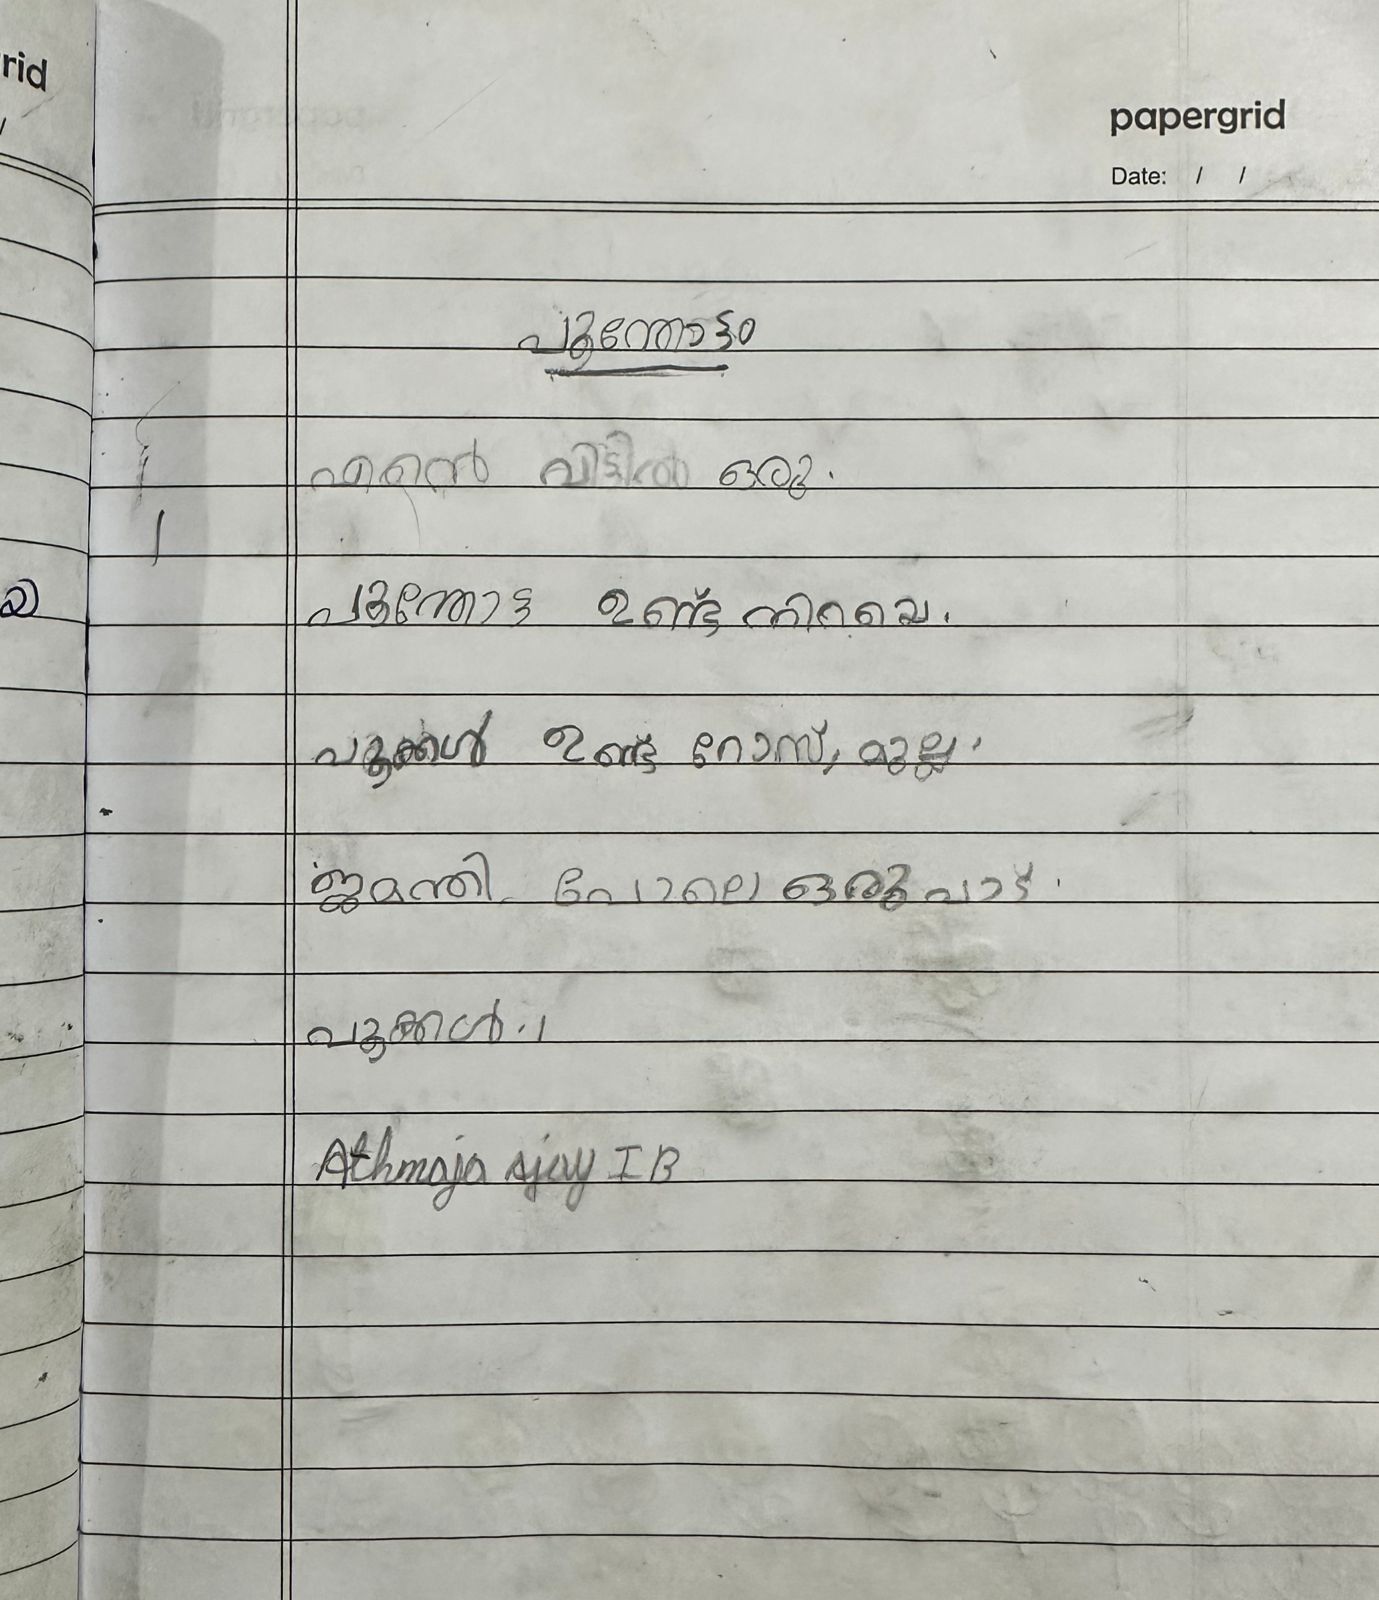 rid
papergrid
Date: / /
പൂന്തോട്ടം
എന്റെ വിട്ടിൽ ഒരു.
പൂന്തോട്ട ഉണ്ട് നിറയെ.
പൂക്കൾ ഉണ്ട് റോസ്, മുല്ല.
ജമന്തി. പോലെ ഒരുപാട്.
പൂക്കൾ.
Athmaja Ajay I B